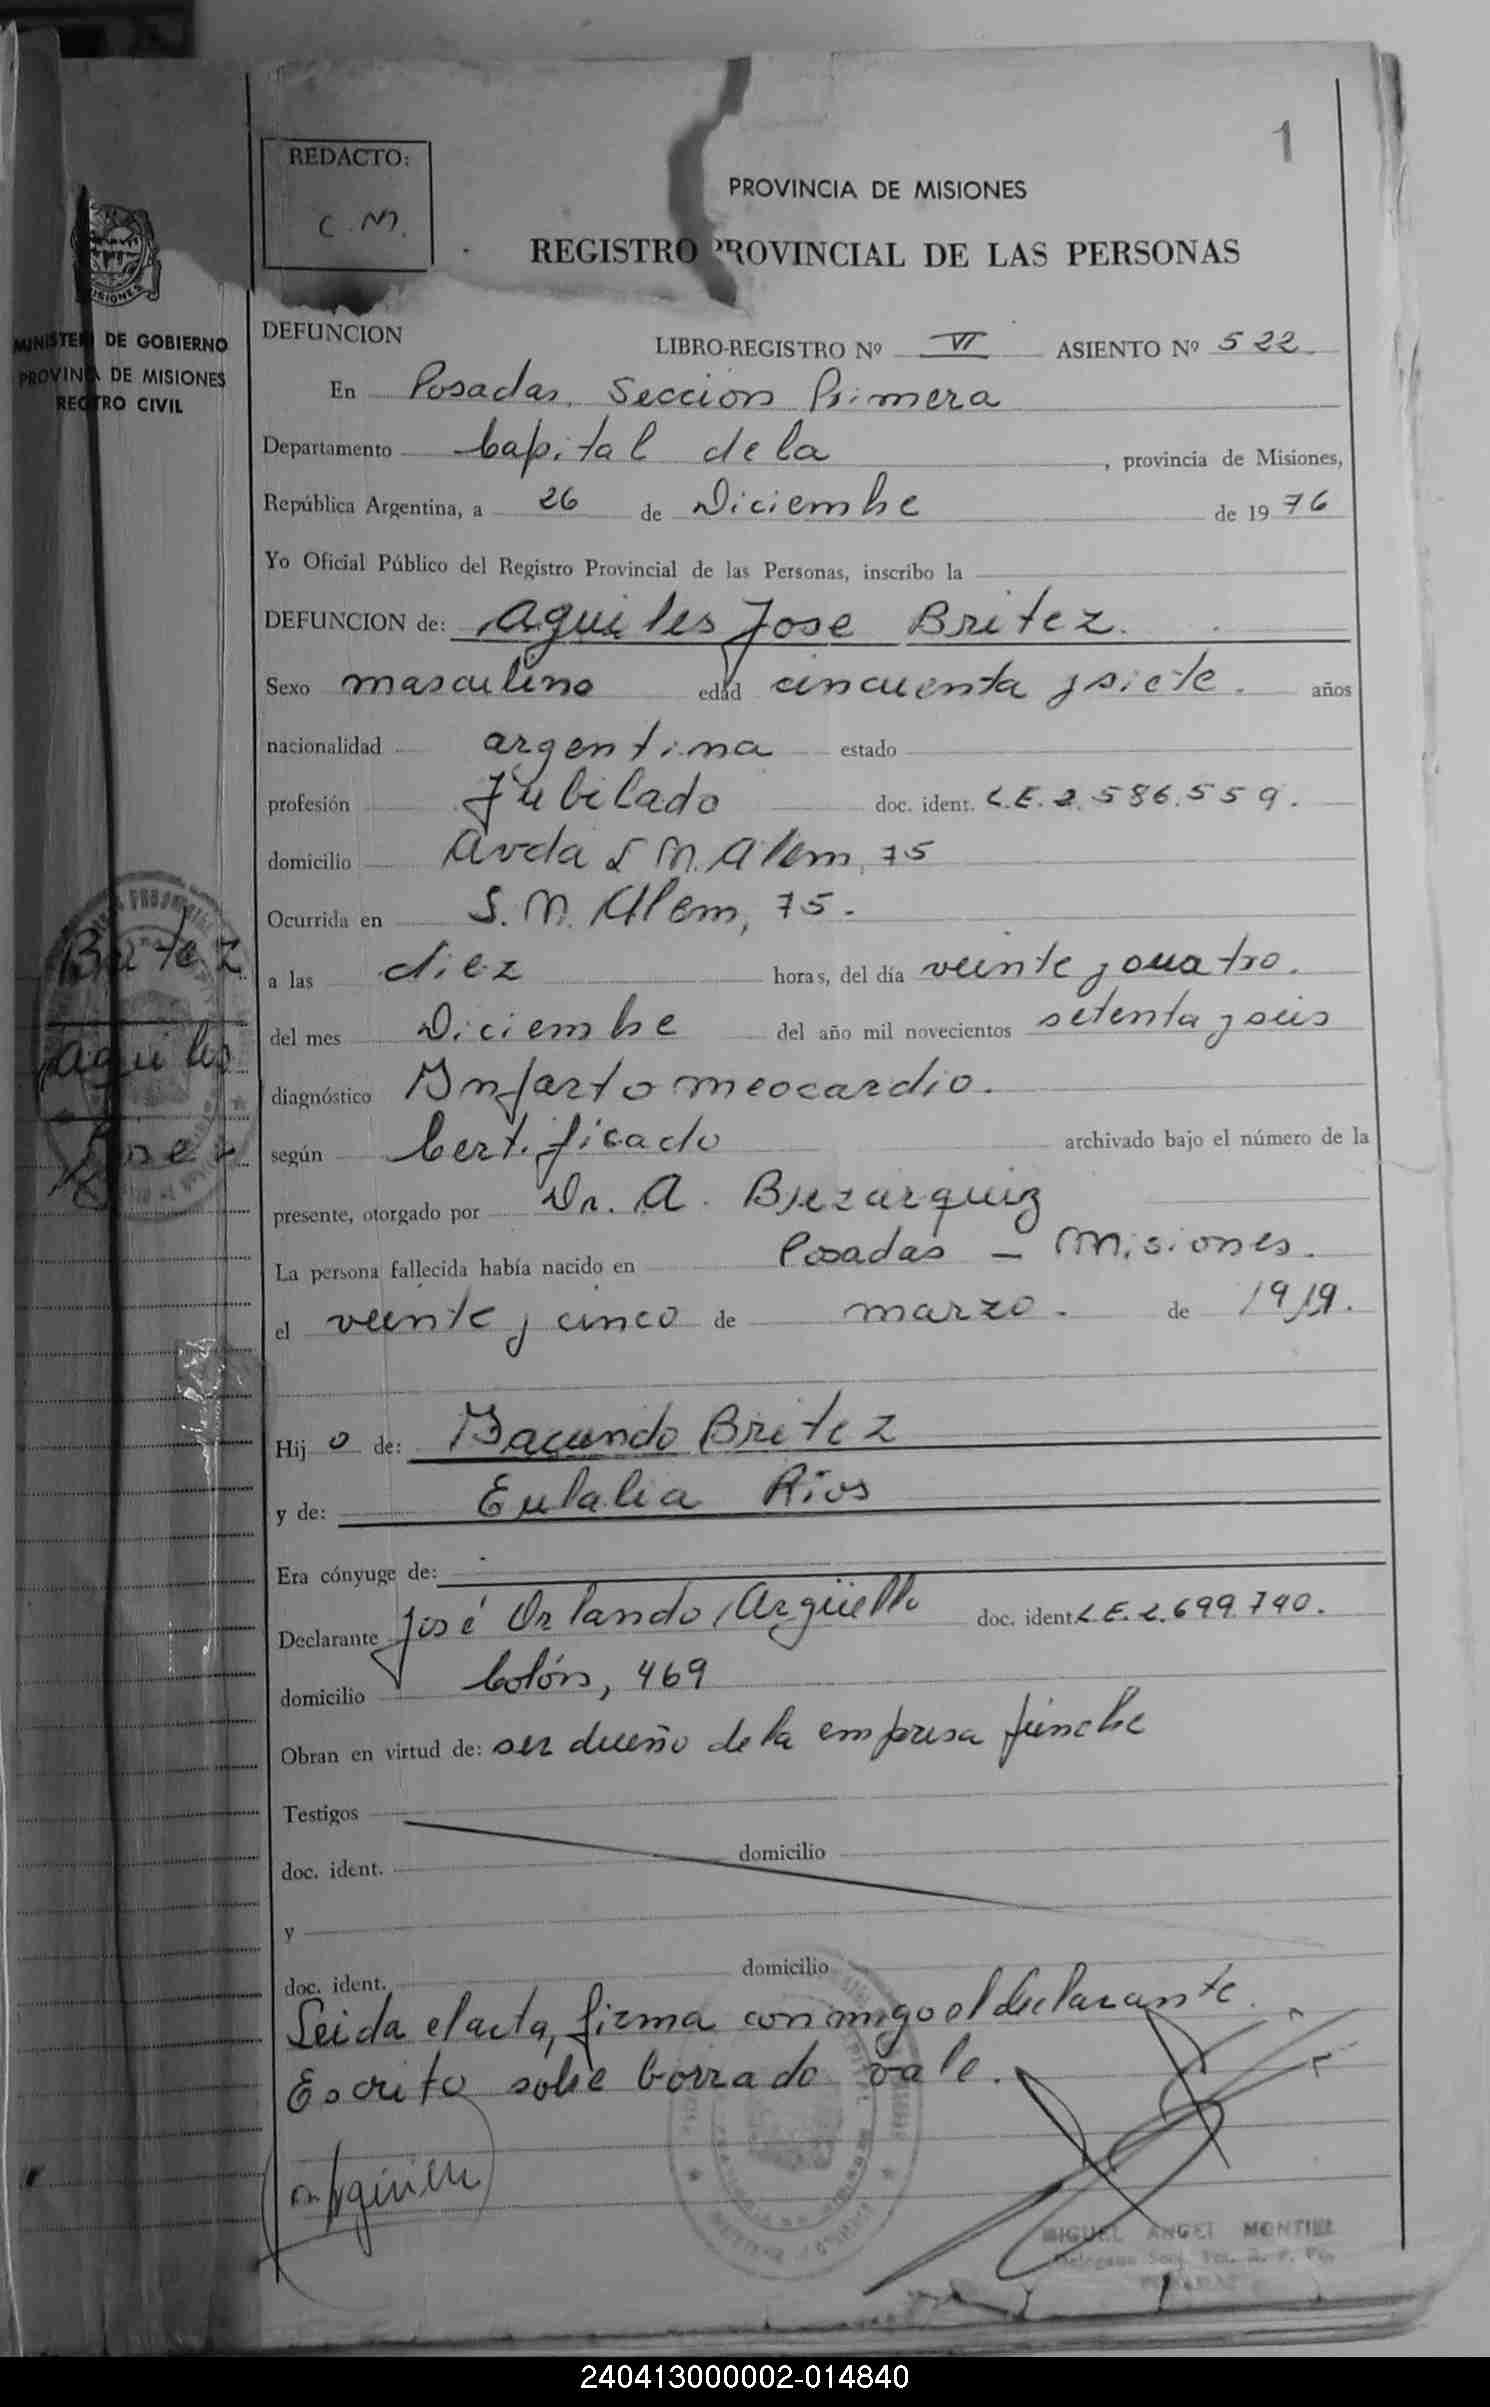 1
REDACTO:
C.M.
PROVINCIA DE MISIONES
REGISTRO PROVINCIAL DE LAS PERSONAS
MINISTERI DE GOBIERNO
PROVINCIA DE MISIONES
REGTRO CIVIL
DEFUNCION
LIBRO-REGISTRO Nº VI ASIENTO Nº 522
En Posadas, Seccion Primera
Departamento Capital de la , provincia de Misiones,
República Argentina, a 26 de Diciembre de 1976
Yo Oficial Público del Registro Provincial de las Personas, inscribo la
DEFUNCION de: Aquiles Jose Britez.
Sexo masculino edad cincuenta y siete. años
nacionalidad argentina estado
profesión Jubilado doc. ident. L.E. 2.586.559.
domicilio Avda L M. Alem, 75
Ocurrida en S. M. Alem, 75.
a las diez horas, del día veinte y cuatro.
del mes Diciembre del año mil novecientos setenta y seis
diagnóstico Infarto meocardio.
según Certificado archivado bajo el número de la
presente, otorgado por Dr. A.
La persona fallecida había nacido en Posadas - Misiones.
el veinte y cinco de marzo. de 1919.
Hijo de: Facundo Britez
y de: Eulalia Rios
Era cónyuge de:
Declarante José Orlando Argüello doc. ident. L.E. 2.699.740.
domicilio Colón, 469
Obran en virtud de: ser dueño de la empresa fúnebre
Testigos
doc. ident. domicilio
y
doc. ident. domicilio
Leida el acta, firma conmigo el declarante.
Escrito sobre borrado vale.
Britez
Aquiles
Jose
MIGUEL ANGEL MONTIEL
240413000002-014840